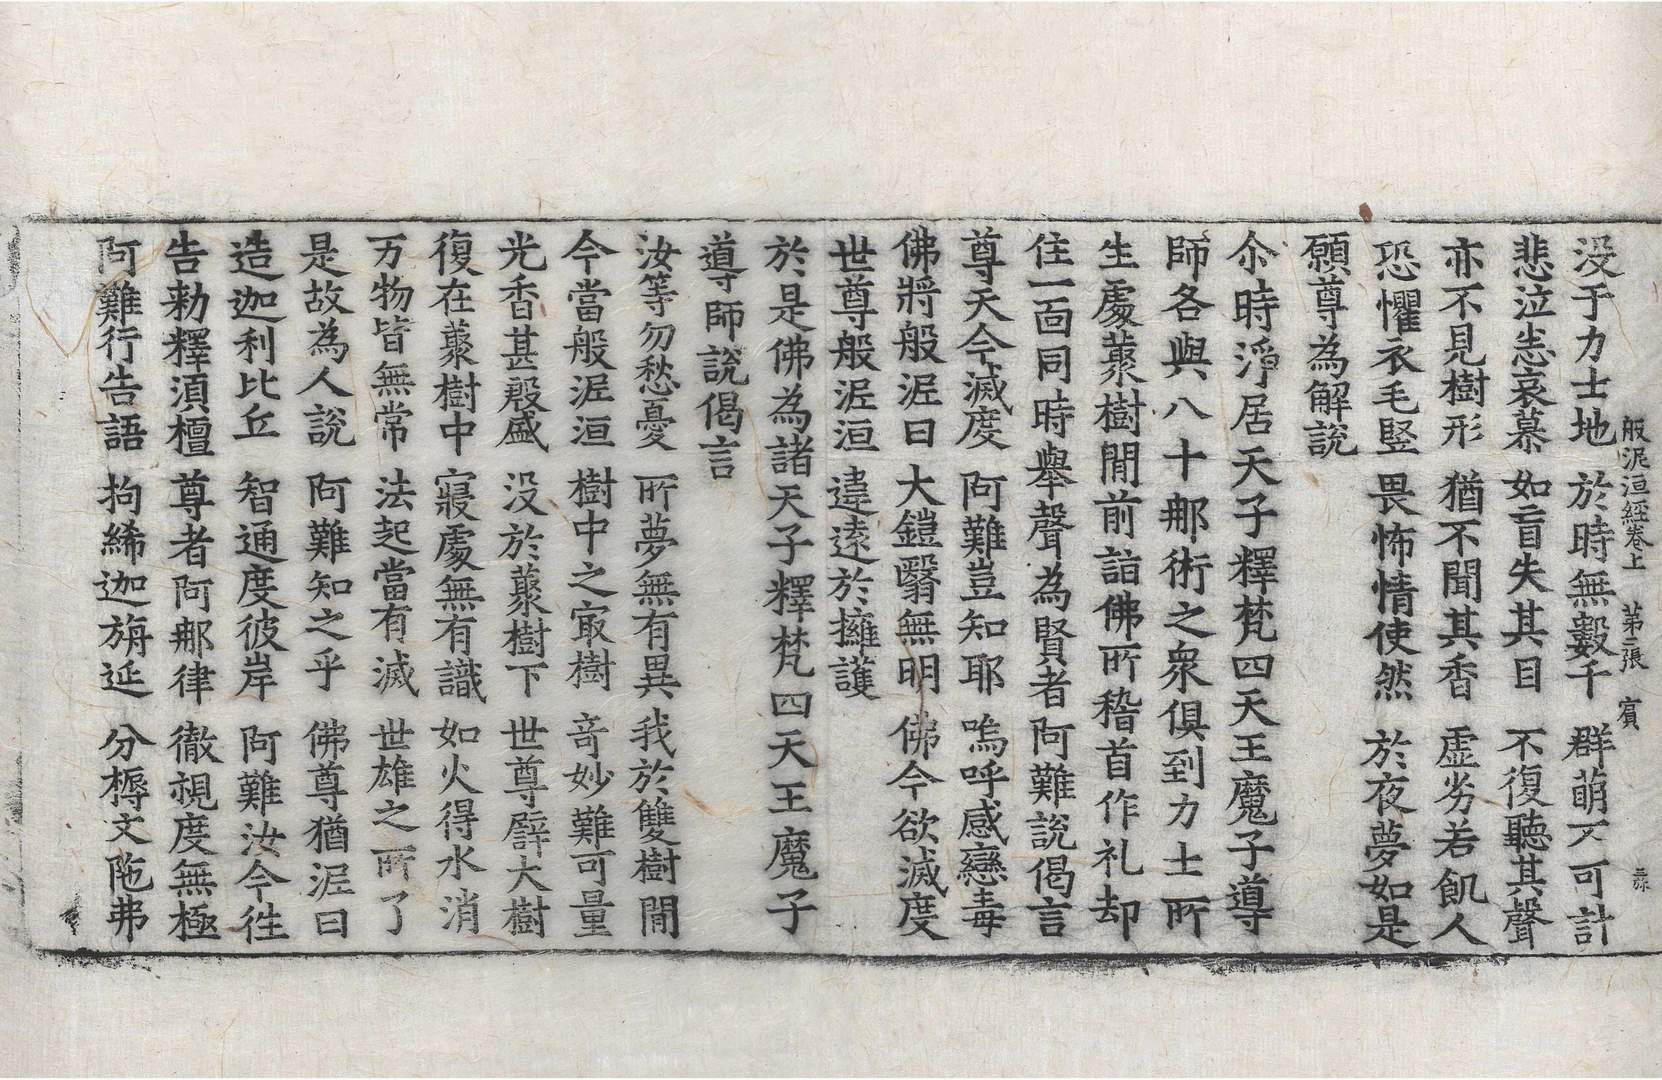 般泥洹經卷上　第二張　賓
没于力士地　於時無數千　群萠不可計
悲泣恚哀慕　如盲失其目　不復聽其聲
亦不見樹形　猶不聞其香　虛劣若飢人
恐懼衣毛竪　畏怖情使然　於夜夢如是
願尊為解説
尒時淨居天子釋梵四天王魔子導
師各與八十那術之衆俱到力士所
生處䕺樹閒前詣佛所稽首作礼却
住一面同時舉聲為賢者阿難說偈言
尊天今滅度　阿難豈知耶　嗚呼感戀毒
佛將般泥曰　大鎧翳無明　佛今欲滅度
世尊般泥洹　違遠於擁護
於是佛為諸天子釋梵四天王魔子
導師說偈言
汝等勿愁憂　所夢無有異　我於雙樹閒
今當般泥洹　樹中之㝡樹　竒妙難可量
光香甚殷盛　没於䕺樹下　世尊礕大樹
復在䕺樹中　寢處無有識　如火得水消
万物皆無常　法起當有滅　世雄之所了
是故為人說　阿難知之乎　佛尊猶泥曰
造迦利比丘　智通度彼岸　阿難汝今徃
告勑釋湏檀　尊者阿那律　徹視度無極
阿難行告語　拘絺迦旃延　分耨文陁弗